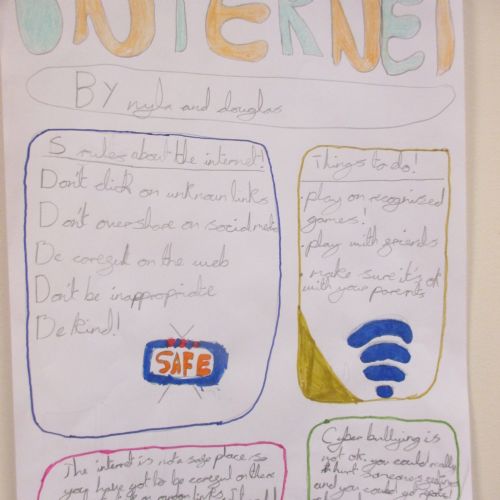 INTERNET
BY nyla and douglas
5 rules about the internet!
Don't click on unknown links
Don't overshare on social media
Be careful on the web
Don't be inappropriate
Be kind!
SAFE
Things to do!
• play on recognised
games!
• play with friends
• make sure it's ok
with your parents
The internet is not a safe place so
you have got to be careful on there
links. It could
Cyber bullying is
not ok you could really
hurt someones
and you could